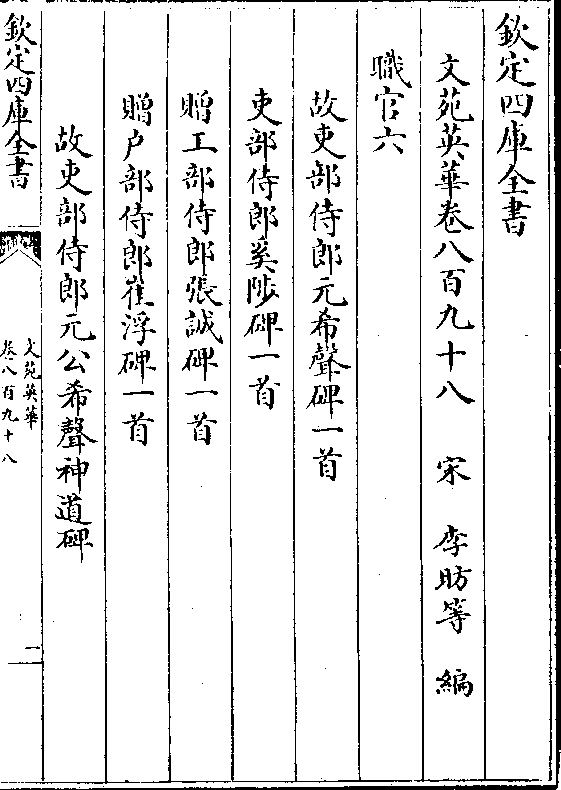 欽定四庫全書
文苑英華卷八百九十八 宋 李昉等 編
職官六
故吏部侍郎元希聲碑一首
吏部侍郎奚陟碑一首
贈工部侍郎張誠碑一首
贈户部侍郎崔浮碑一首
故吏部侍郎元公希聲神道碑
欽定四庫全書
文苑英華
卷八百九十八
一